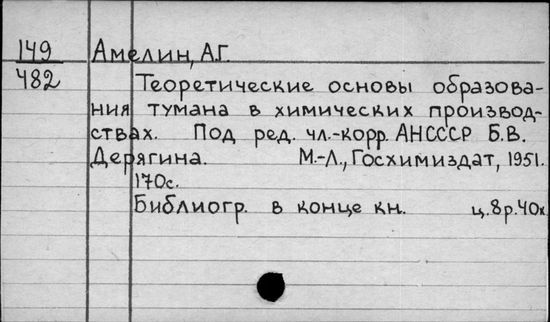 149 Амелин, А.Г.
482 Теоретические основы образова-
ния тумана в химических производ-
ствах. Под ред. чл.-корр. АНСССР Б.В.
Дерягина. М.-Л., Госхимиздат, 1951.
170с.
Библиогр. в конце кн. ц. 8р. 40к.